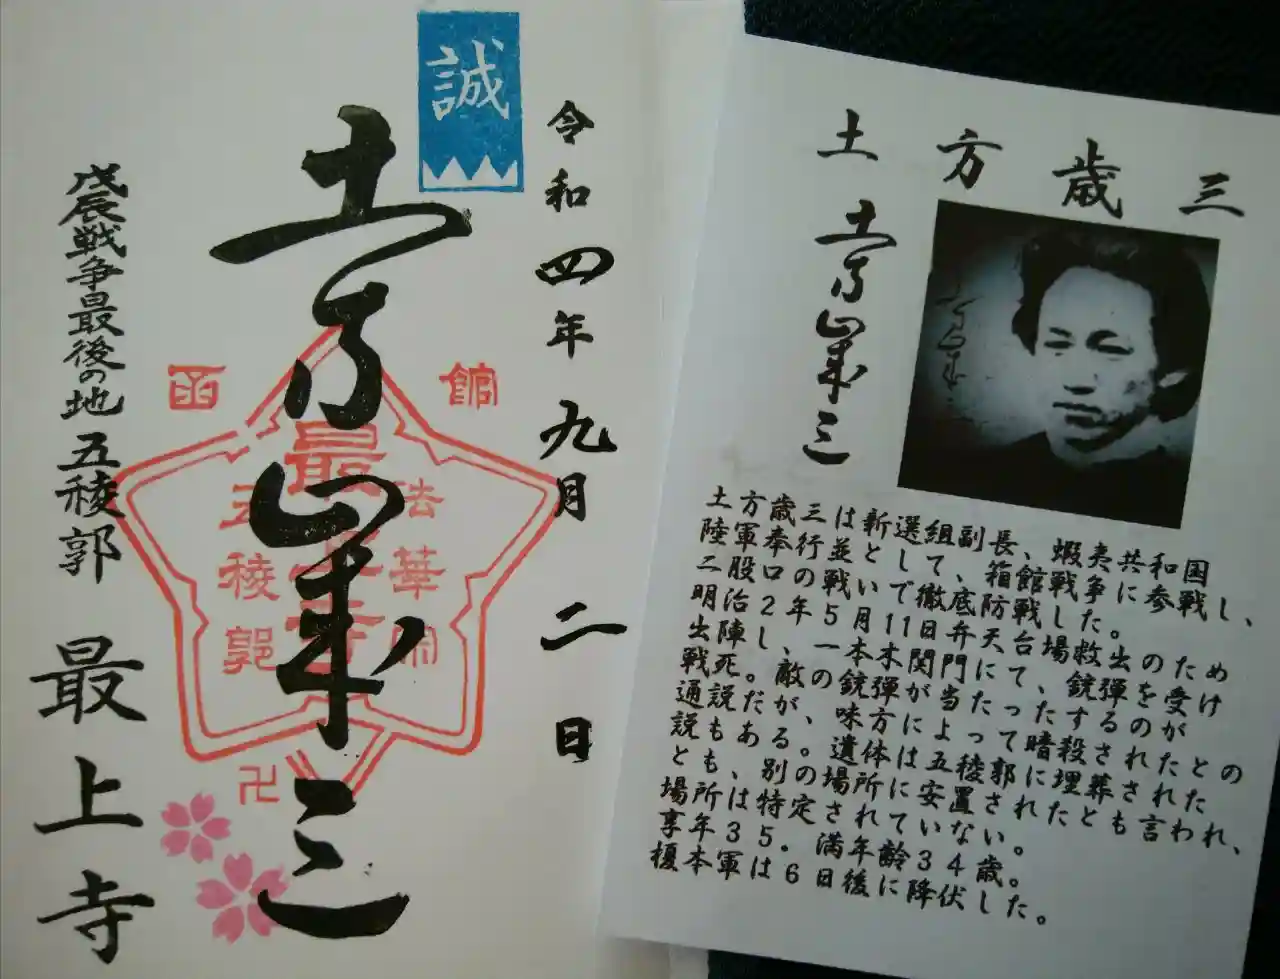 令和四年九月二日
誠
土方歳三
函館
法華宗
最上寺
五稜郭
卍
戊辰戦争最後の地 五稜郭
最上寺
土方歳三
土方歳三
土方歳三は新選組副長、蝦夷共和国
陸軍奉行並として、箱館戦争に参戦し、
二股口の戦いで徹底防戦した。
明治2年5月11日弁天台場救出のため
出陣し、一本木関門にて、銃弾を受け
戦死。敵の銃弾が当たったするのが
通説だが、味方によって暗殺されたとの
説もある。遺体は五稜郭に埋葬された
とも、別の場所に安置されたとも言われ、
場所は特定されていない。
享年35。満年齢34歳。
榎本軍は6日後に降伏した。